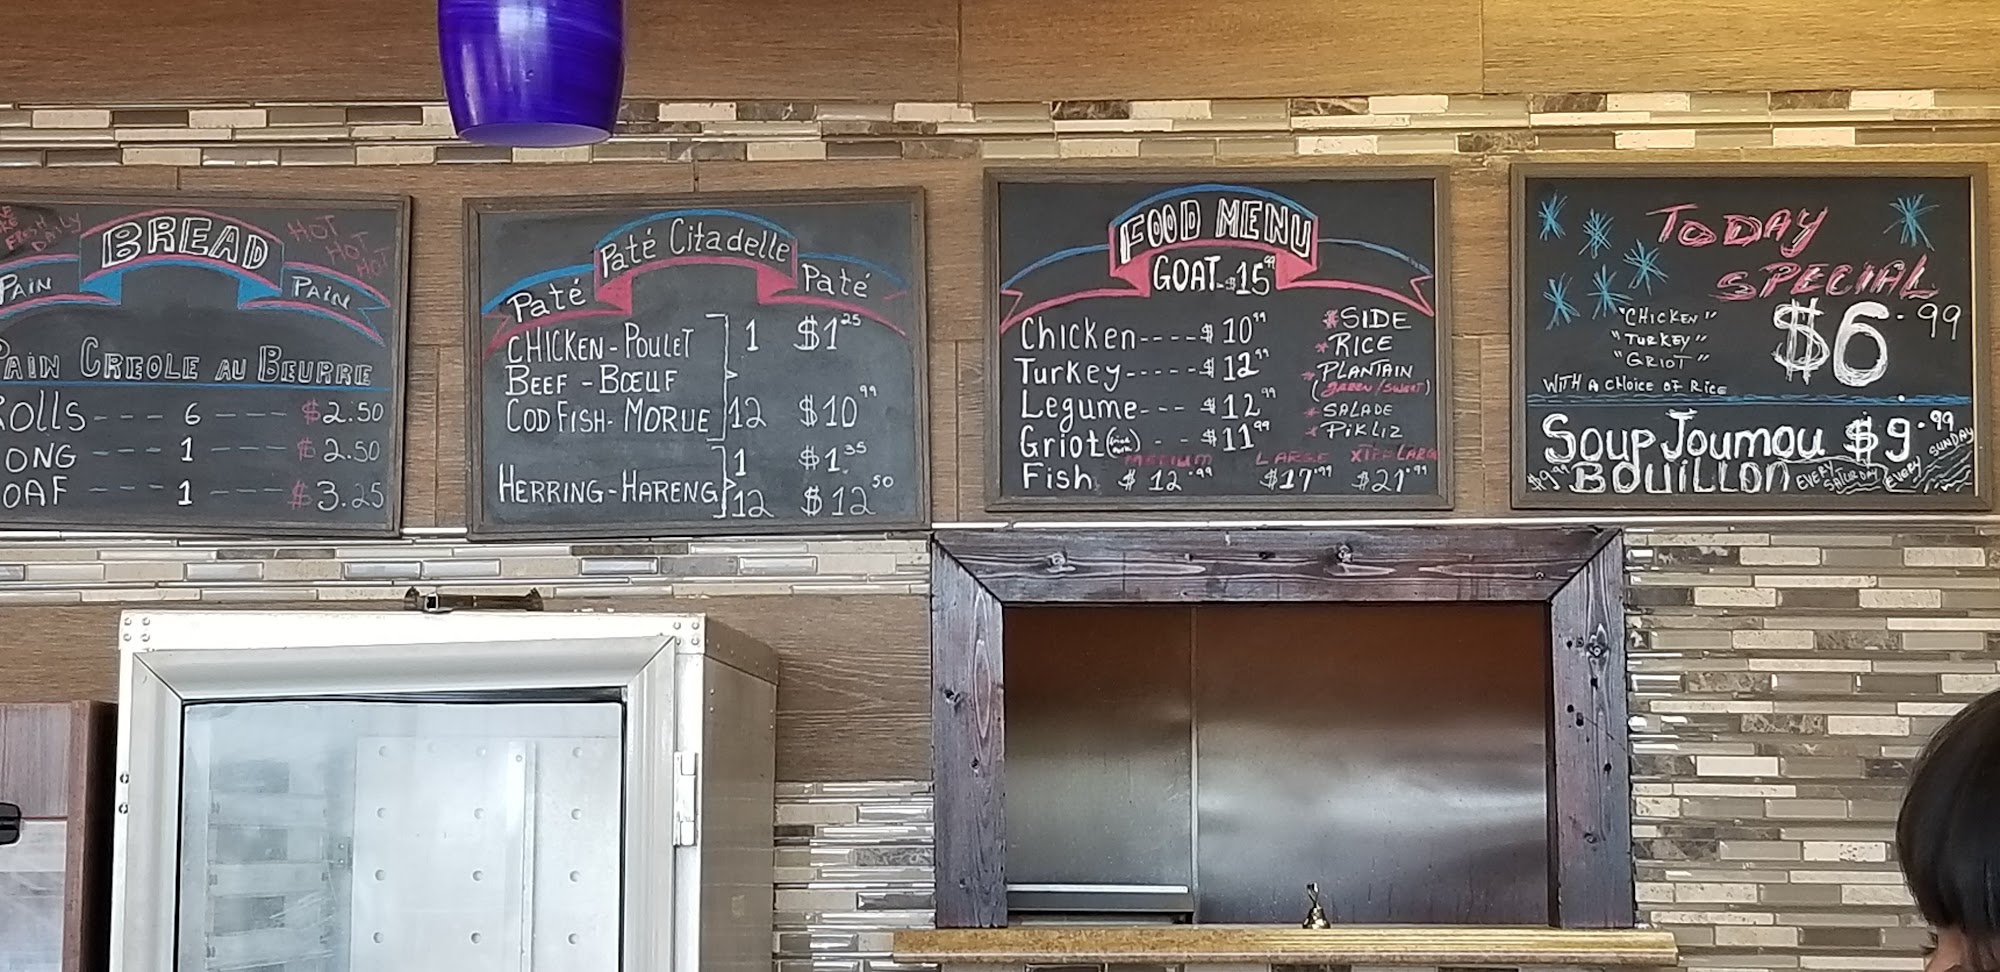 FRESH
DAILY
BREAD
HOT
HOT
HOT
PAIN
PAIN
PAIN CREOLE AU BEURRE
ROLLS --- 6 --- $2.50
ONG --- 1 --- $2.50
OAF --- 1 --- $3.25
Paté Citadelle
Paté
Paté
CHICKEN-POULET 1 $1.25
BEEF-BŒUF
COD FISH-MORUE 12 $10.99
1 $1.35
HERRING-HARENG
12 $12.50
FOOD MENU
GOAT-$15.99
Chicken----$10.99
Turkey-----$12.99
Legume---$12.99
Griot - - $11.99
MEDIUM LARGE XTRA LARG
Fish $12.99 $17.99 $21.99
*SIDE
*RICE
*PLANTAIN
(GREEN/SWEET)
*SALADE
*PIKLIZ
TODAY
SPECIAL
"CHICKEN"
"TURKEY"
"GRIOT"
$6.99
WITH A CHOICE OF RICE
SOUP JOUMOU $9.99
EVERY SUNDAY
$9.99 BOUILLON EVERY SATURDAY